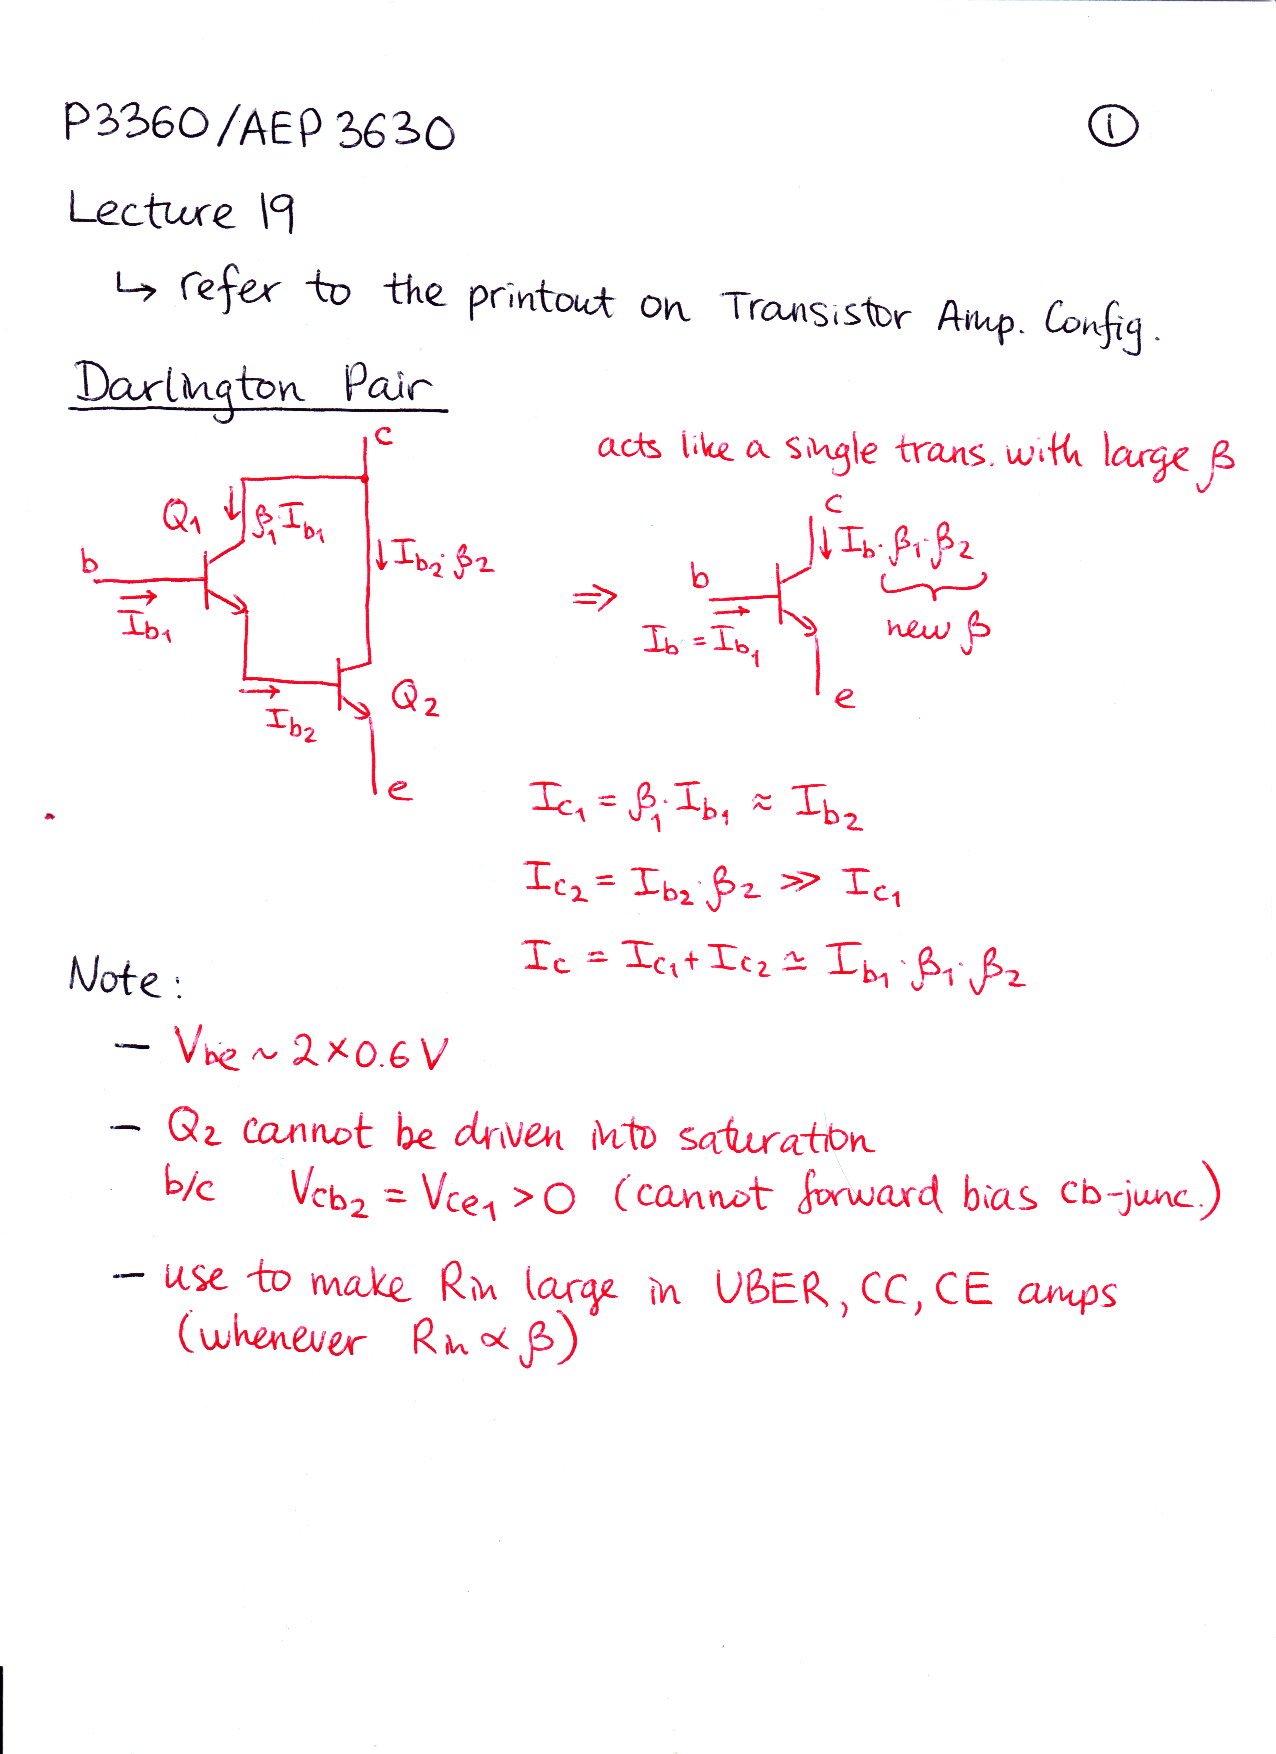 P3360/AEP 3630
①
Lecture 19
↳ refer to the printout on Transistor Amp. Config.
Darlington Pair
acts like a single trans. with large β
c
Q₁ ↓ β₁·I_b₁
b
I_b₁
↓ I_b₂·β₂
I_b₂
Q₂
e
⇒
c
↓ I_b·β₁·β₂
new β
b
I_b = I_b₁
e
I_c₁ = β₁·I_b₁ ≈ I_b₂
I_c₂ = I_b₂·β₂ ≫ I_c₁
I_c = I_c₁ + I_c₂ ≃ I_b₁·β₁·β₂
Note:
– V_be ~ 2×0.6 V
– Q₂ cannot be driven into saturation
b/c V_cb₂ = V_ce₁ > 0 (cannot forward bias cb-junc.)
– use to make Rin large in UBER, CC, CE amps
(whenever Rin ∝ β)